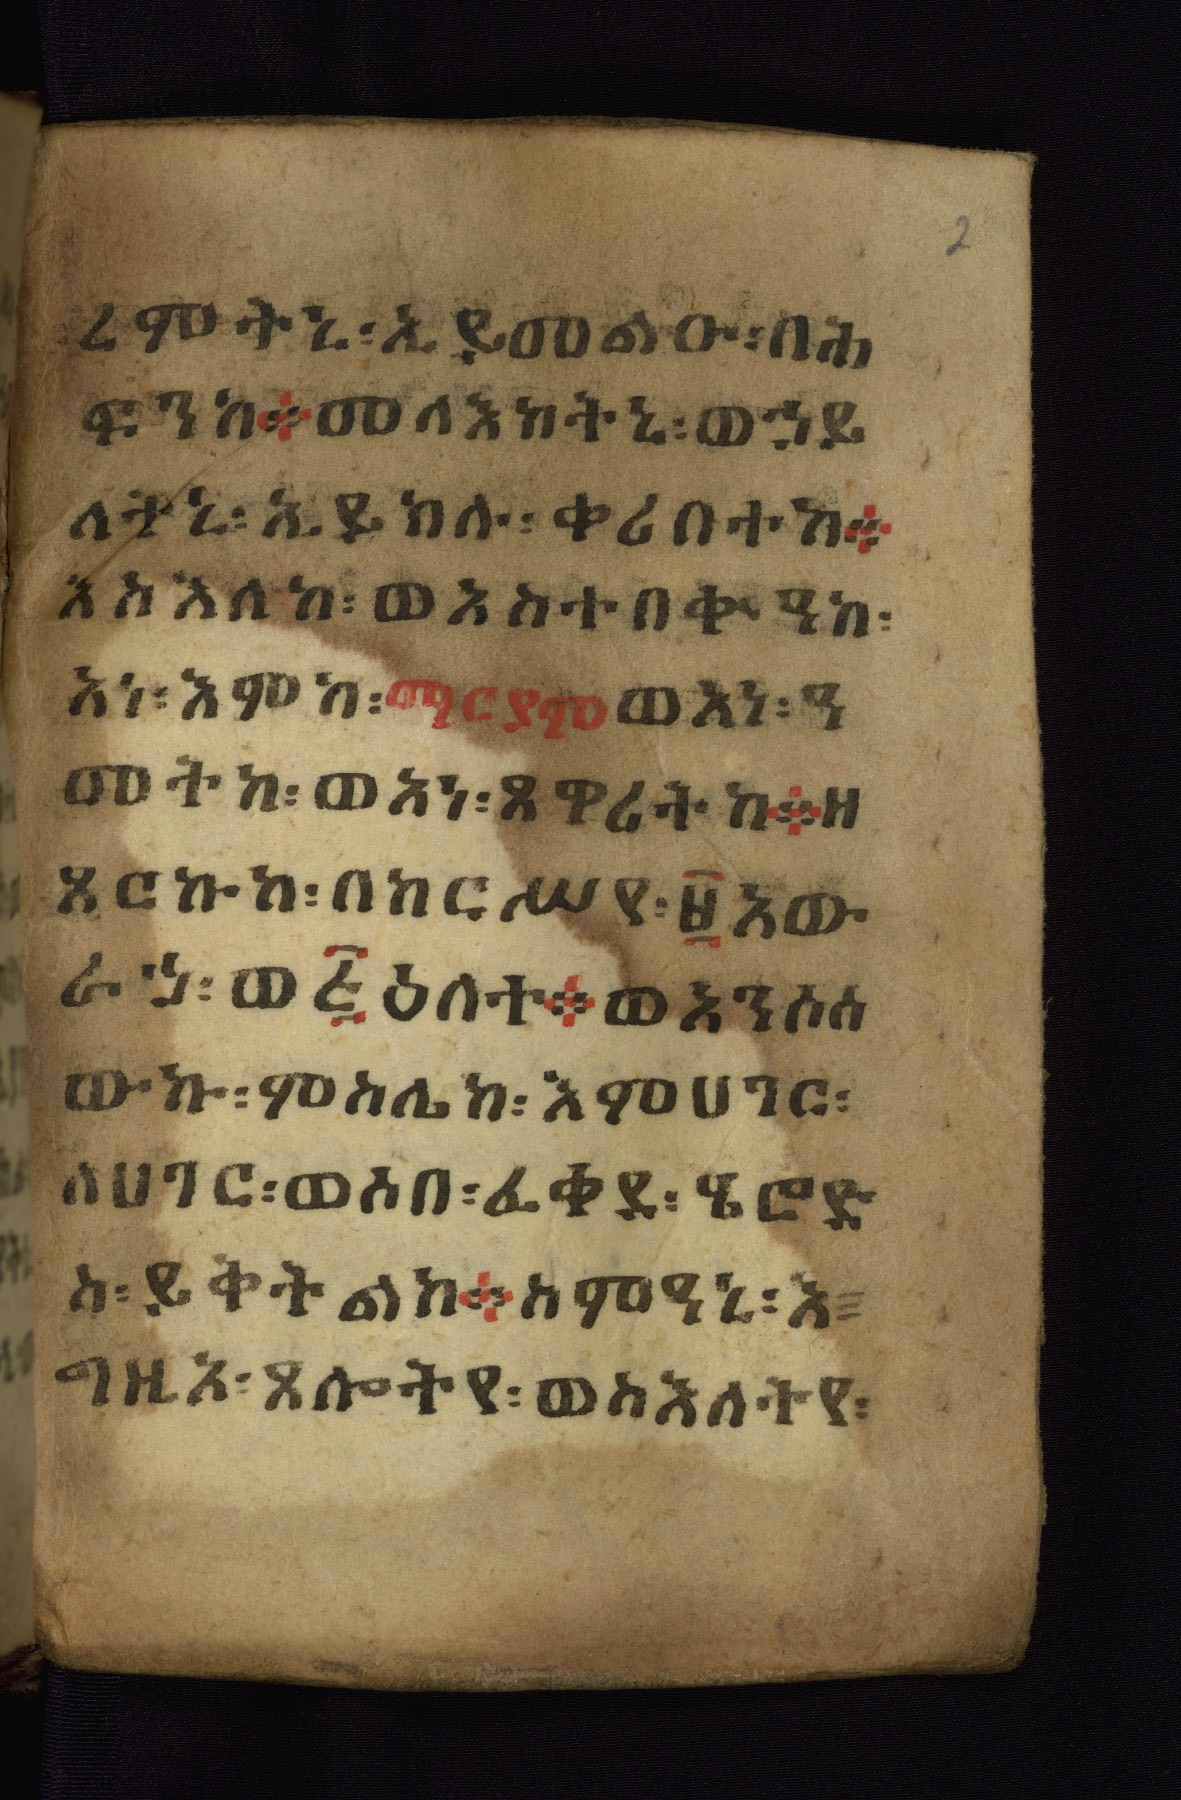 2
ረምትኒ፡ኢይመልው፡በሕ
ፍንከ፨መላእክትኒ፡ወኃይ
ላትኒ፡ኢይክሉ፡ቀሪበተከ፨
እስእለከ፡ወእስተበቍዓከ፡
አነ፡እምከ፡ማርያምወአነ፡ዓ
መትከ፡ወአነ፡ጾዋሪትከ፨ዘ
ጾርኩከ፡በከርሥየ፡፱አው
ራኃ፡ወ፭ዕለተ፨ወአንሶሰ
ውኩ፡ምስሌከ፡እምሀገር፡
ለሀገር፡ወሶበ፡ፈቀደ፡ሄሮድ
ስ፡ይቅትልከ፨ስምዓኒ፡እ
ግዚአ፡ጸሎትየ፡ወስእለትየ፡